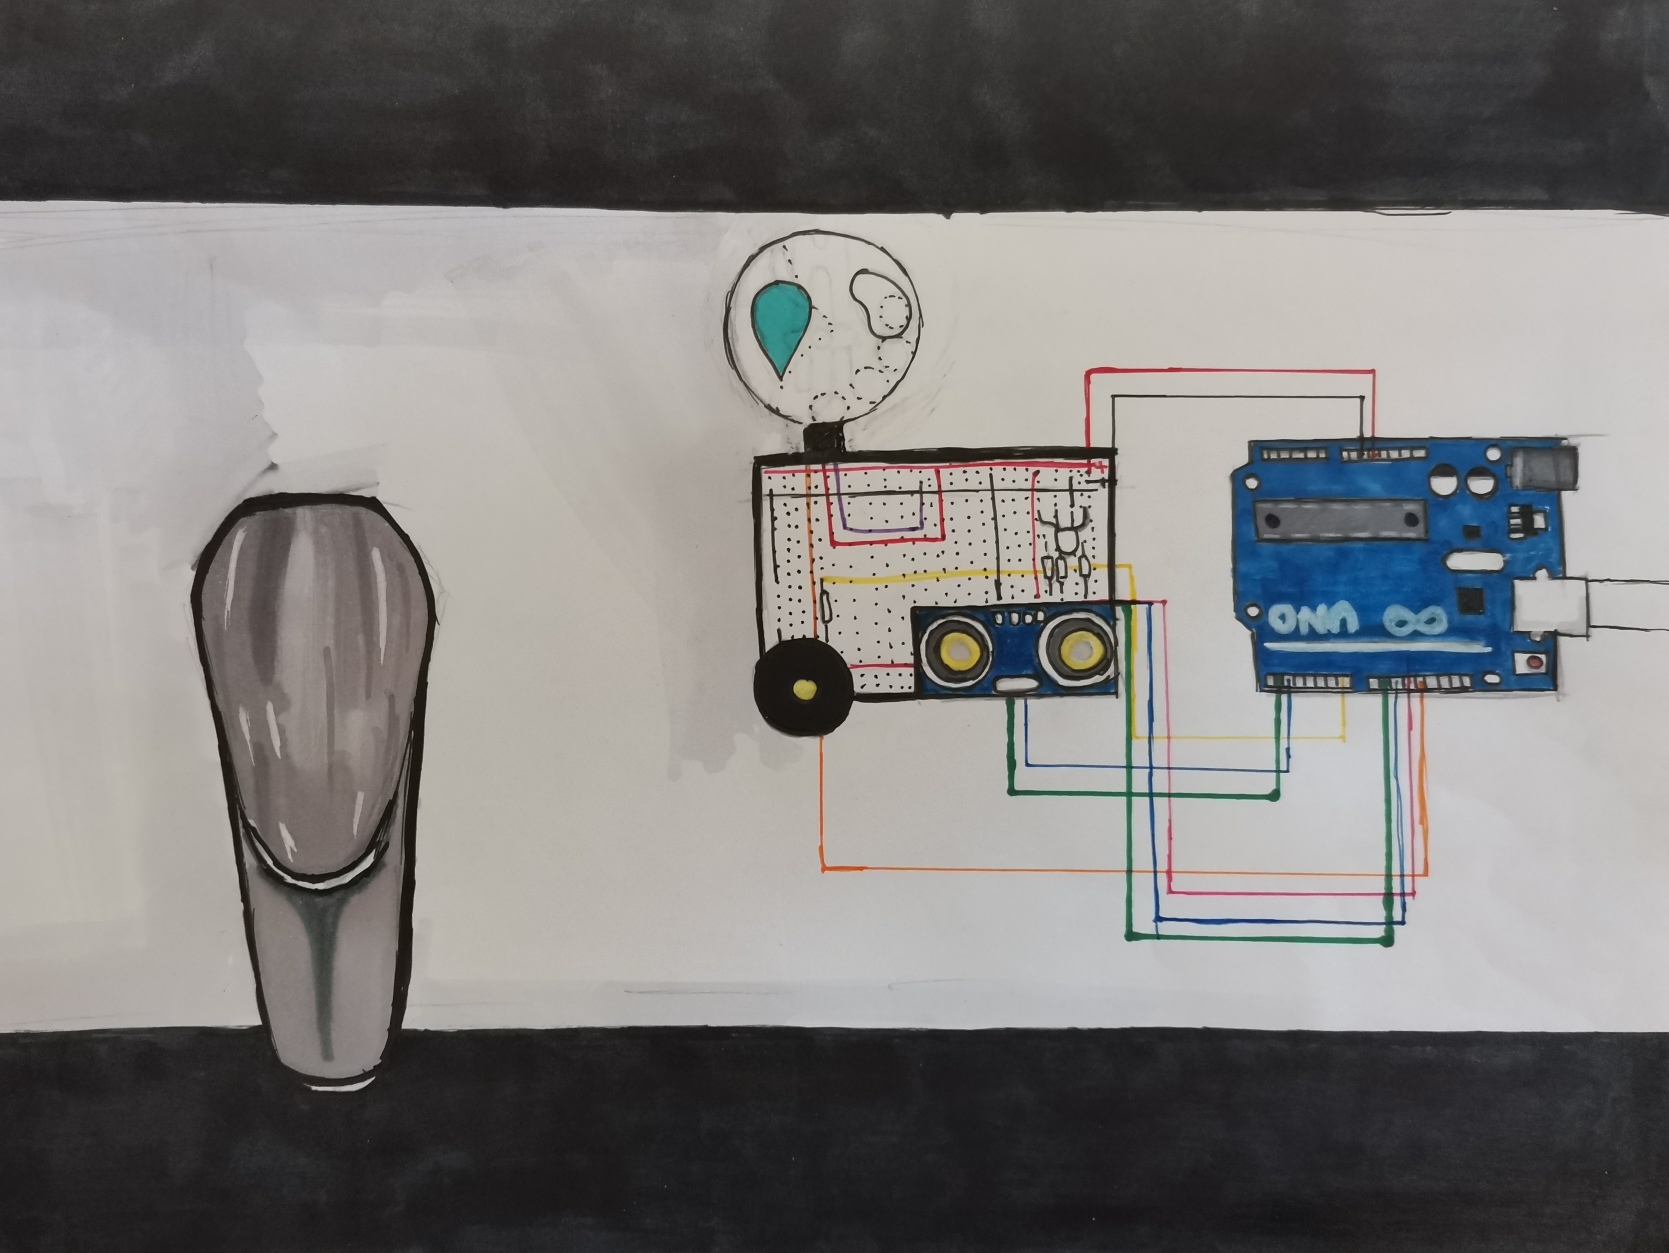 ∞ UNO